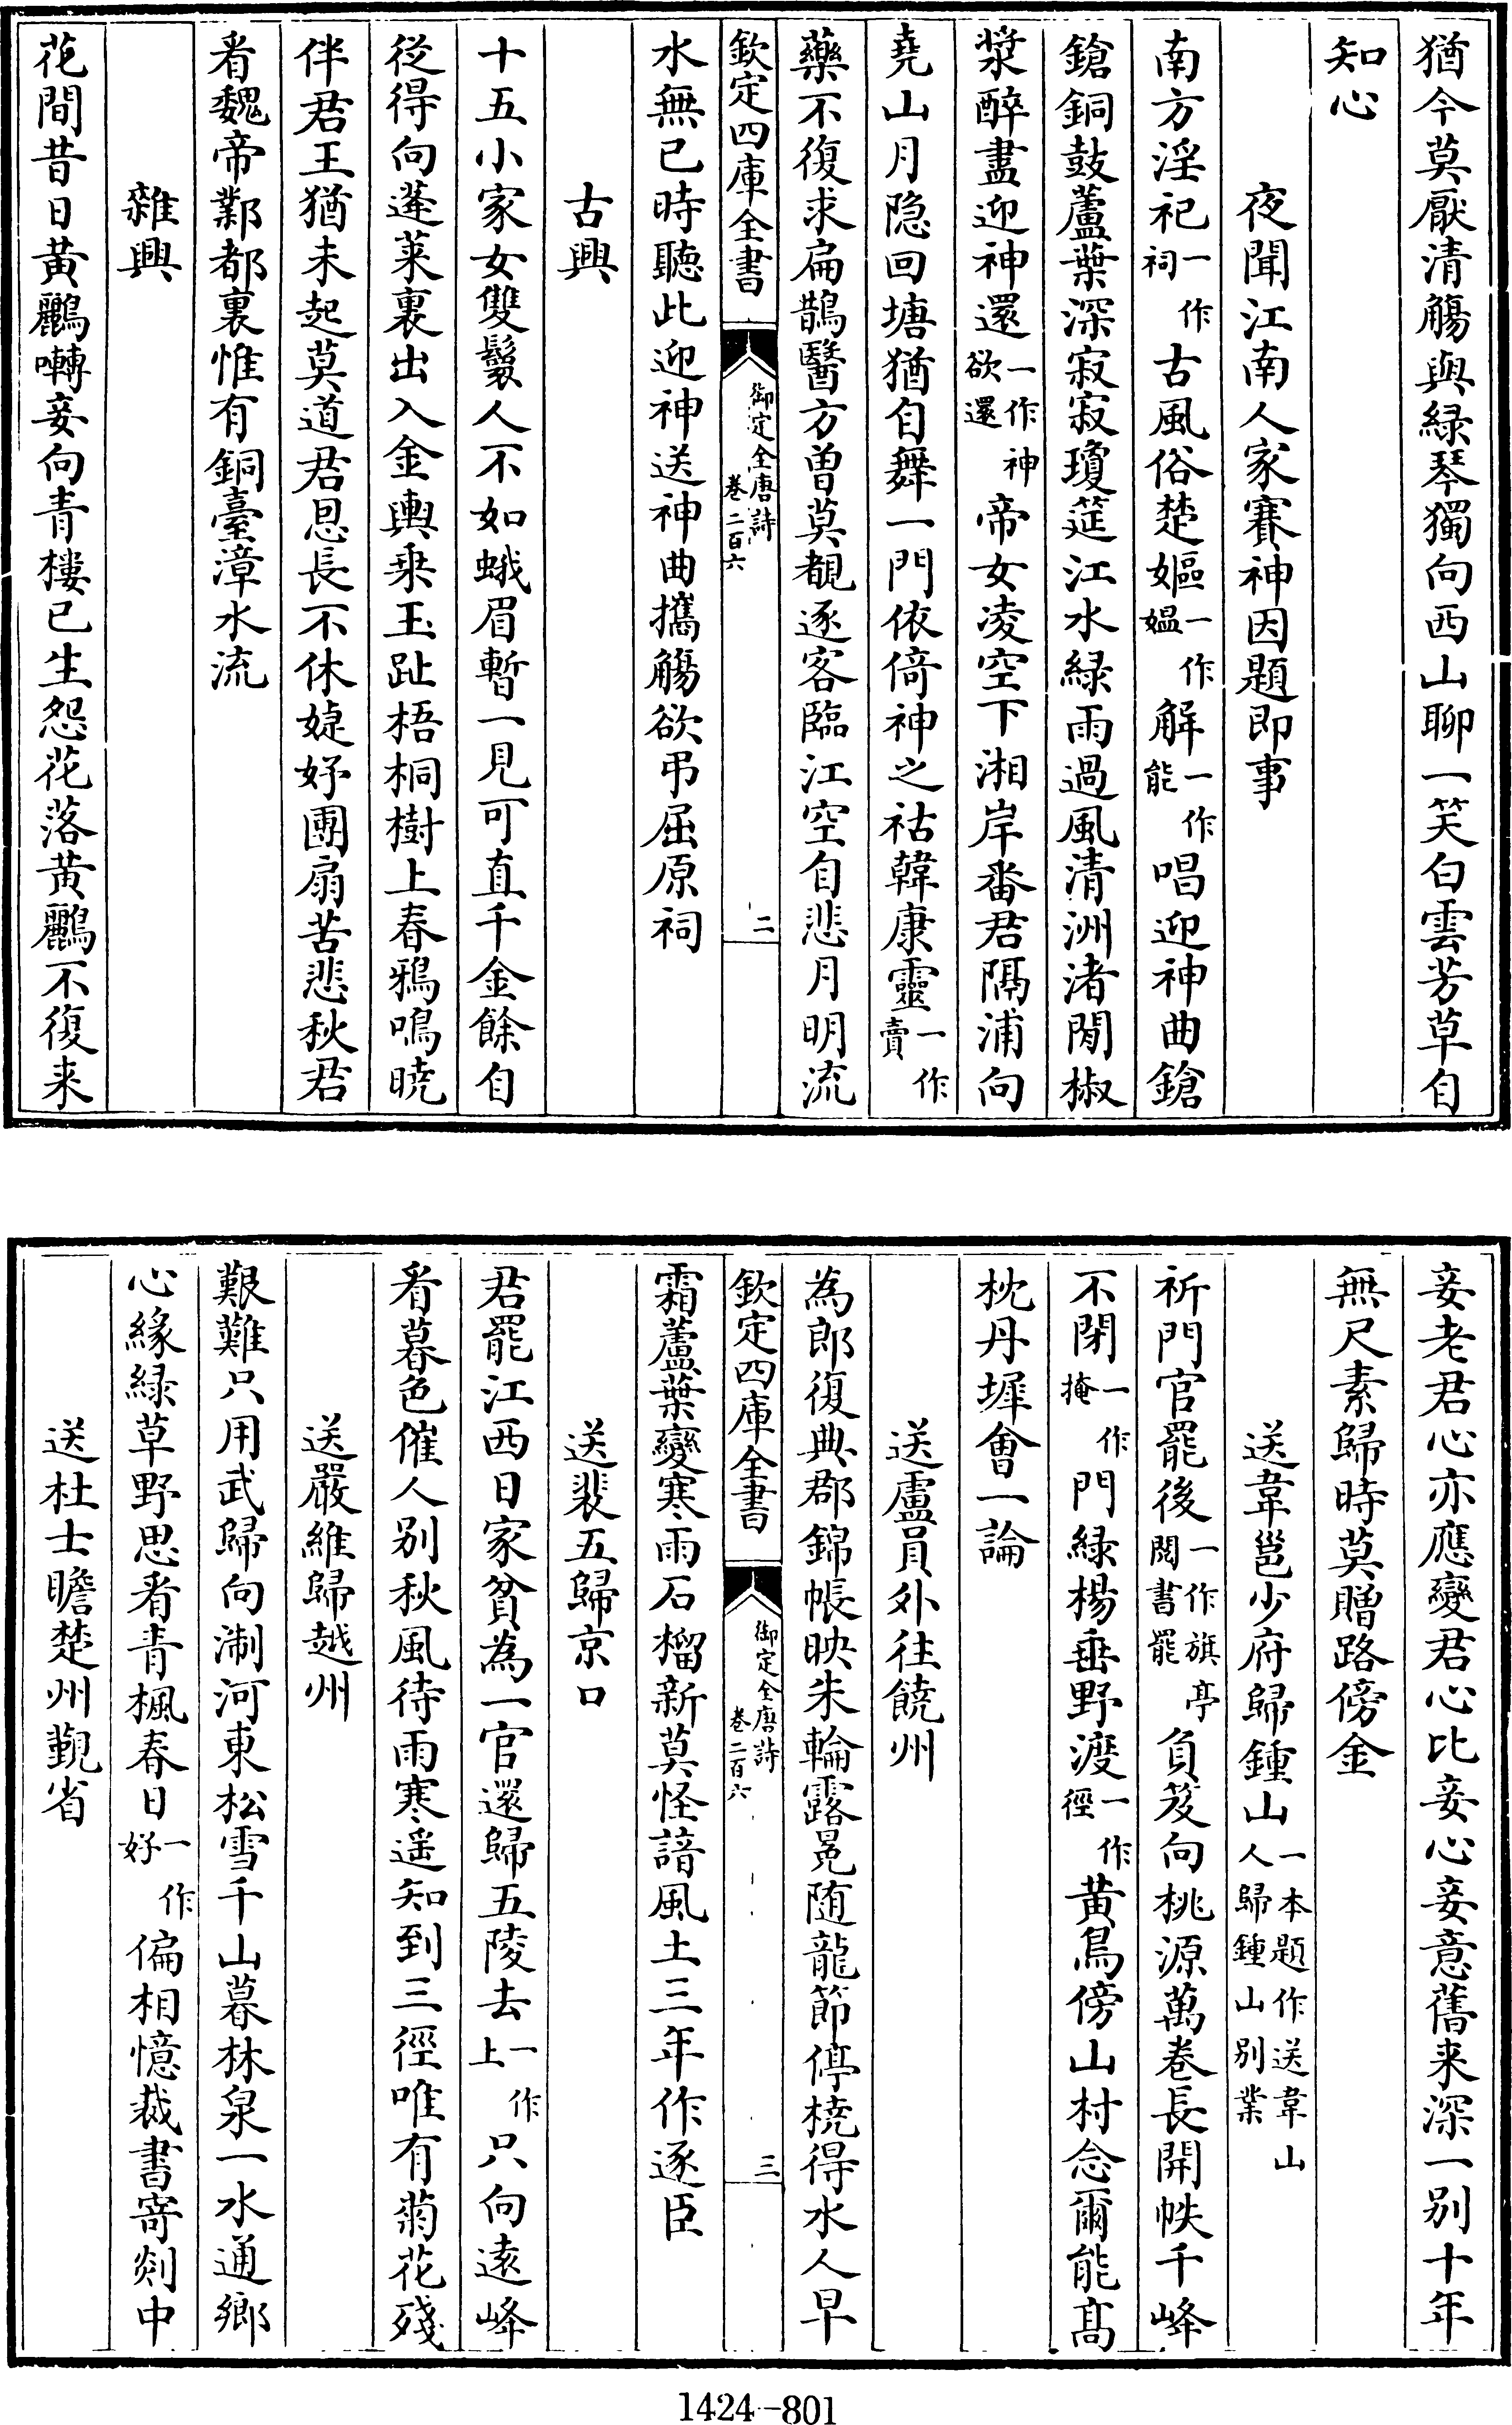 猶今莫厭清觴與緑琴獨向西山聊一笑白雲芳草自
知心
夜聞江南人家賽神因題即事
南方淫祀一作祠古風俗楚嫗一作媪解一作能唱迎神曲鎗
鎗銅鼓蘆葉深寂寂瓊筵江水緑雨過風清洲渚閒椒
漿醉盡迎神還一作神欲還帝女凌空下湘岸番君隔浦向
堯山月隐回塘猶自舞一門依倚神之祜韓康靈一作賣
藥不復求扁鵲醫方曽莫覩逐客臨江空自悲月明流
欽定四庫全書 御定全唐詩 卷二百六 二
水無已時聽此迎神送神曲攜觴欲弔屈原祠
古興
十五小家女雙鬟人不如蛾眉暫一見可直千金餘自
從得向蓬莱裏出入金輿乗玉趾梧桐樹上春鴉鳴暁
伴君王猶未起莫道君恩長不休婕妤團扇苦悲秋君
看魏帝鄴都裏惟有銅臺漳水流
雜興
花間昔日黄鸝囀妾向青樓已生怨花落黄鸝不復来
妾老君心亦應變君心比妾心妾意舊来深一别十年
無尺素歸時莫贈路傍金
送韋邕少府歸鍾山一本題作送韋山人歸鍾山别業
祈門官罷後一作旗亭閱書罷負笈向桃源萬巻長開帙千峰
不閉一作掩門緑楊垂野渡一作徑黄鳥傍山村念爾能髙
枕丹墀會一論
送盧員外往饒州
為郎復典郡錦帳映朱輪露冕随龍節停橈得水人早
欽定四庫全書 御定全唐詩 卷二百六 三
霜蘆葉變寒雨石榴新莫怪諳風土三年作逐臣
送裴五歸京口
君罷江西日家貧為一官還歸五陵去一作上只向遠峰
看暮色催人别秋風待雨寒遥知到三徑唯有菊花殘
送嚴維歸越州
艱難只用武歸向淛河東松雪千山暮林泉一水通鄉
心緣緑草野思看青楓春日一作好偏相憶裁書寄剡中
送杜士瞻楚州覲省
1424-801